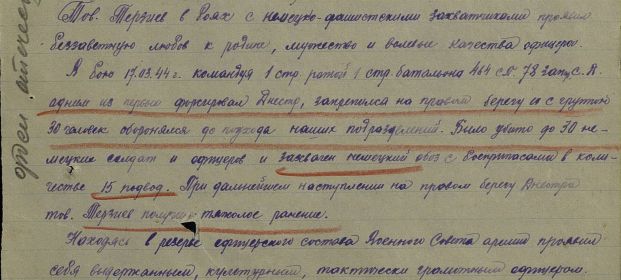 Тов. Терзиев в боях с немецко-фашистскими захватчиками проявил
беззаветную любовь к родине, мужество и волевые качества офицера.
В бою 17.03.44 г. командуя 1 стр. ротой 1 стр. батальона 464 с.п. 78
одним из первых форсировал Днестр, закрепился на правом берегу и с группой
30 человек оборонялся до подхода наших подразделений. Было убито до 70 не-
мецких солдат и офицеров и захвачен немецкий обоз с боеприпасами в коли-
честве 15 подвод. При дальнейшем наступлении на правом берегу Днестра
тов. Терзиев получил тяжолое ранение.
Находясь в резерве офицерского состава Военного Совета армии проявил
себя выдержанным, культурным, тактически грамотным офицером.
орден